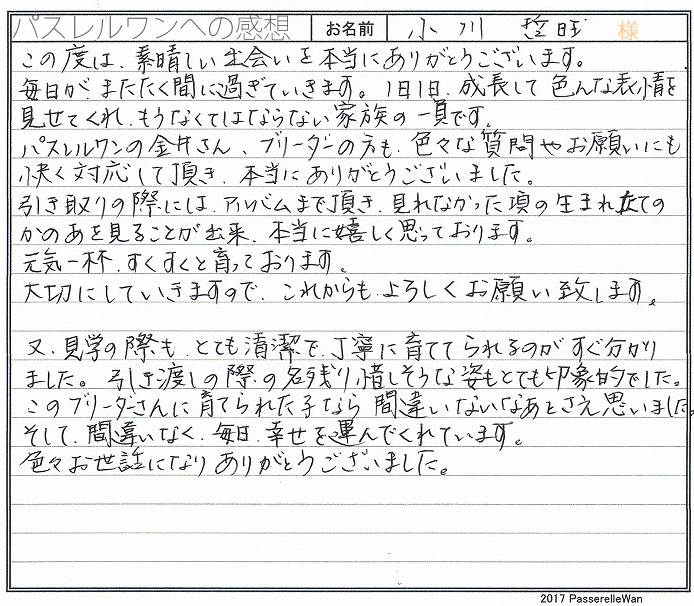 パスレルワンへの感想 お名前 小川 哲旺 様
この度は、素晴しい出会いを本当にありがとうございます。
毎日が、またたく間に過ぎていきます。1日1日、成長して色んな表情を
見せてくれ、もうなくてはならない家族の一員です。
パスレルワンの金井さん、ブリーダーの方も、色々な質問やお願いにも
快く対応して頂き、本当にありがとうございました。
引き取りの際には、アルバムまで頂き、見れなかった頃の生まれ立ての
かのあを見ることが出来、本当に嬉しく思っております。
元気一杯、すくすくと育っております。
大切にしていきますので、これからも、よろしくお願い致します。
又、見学の際も、とても清潔で、丁寧に育ててられるのがすぐ分かり
ました。引き渡しの際の名残り惜しそうな姿もとても印象的でした。
このブリーダーさんに育てられた子なら間違いないなあとさえ思いました。
そして、間違いなく、毎日、幸せを運んでくれています。
色々お世話になりありがとうございました。
2017 PasserelleWan